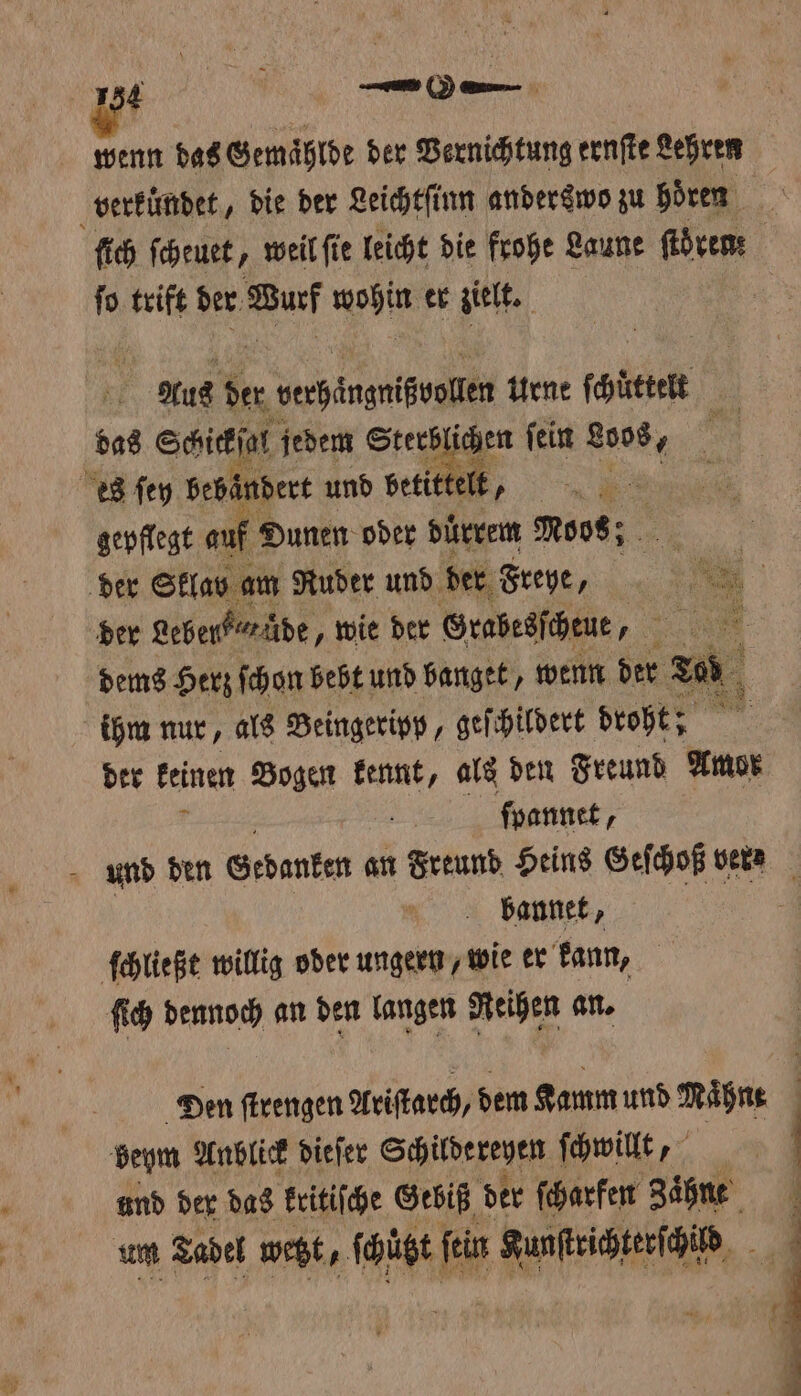 134
wenn das Gemåhlde der Vernichtung ernſte Lehren
verkůndet, die der Leichtſinn anderswo zu hören
ſich ſcheuet, weil ſie leicht die frohe Laune ſtören:
ſo trift der Wurf wohin er zielt.
Aus der verhångnißvollen Urne ſchůttelt
das Schickſal jedem Sterblichen ſein Loos,
es ſey bebåndert und betittelt,
gepflegt auf Dunen oder důrrem Moos;
der Sklav am Ruder und der Freye,
der Lebensmůde, wie der Grabesſcheue,
dems Herz ſchon bebt und banget, wenn der Tod
ihm nur, als Beingeripp, geſchildert droht;
der keinen Bogen kennt, als den Freund Amor
ſpannet,
und den Gedanken an Freund Heins Geſchoß ver⸗
bannet,
ſchließt willig oder ungern, wie er kann,
ſich dennoch an den langen Reihen an.
Den ſtrengen Ariſtarch, dem Kamm und Måhne
beym Anblick dieſer Schildereyen ſchwillt,
und der das kritiſche Gebiß der ſcharfen Zåhne
um Tadel wetzt, ſchůtzt ſein Kunſtrichterſchild